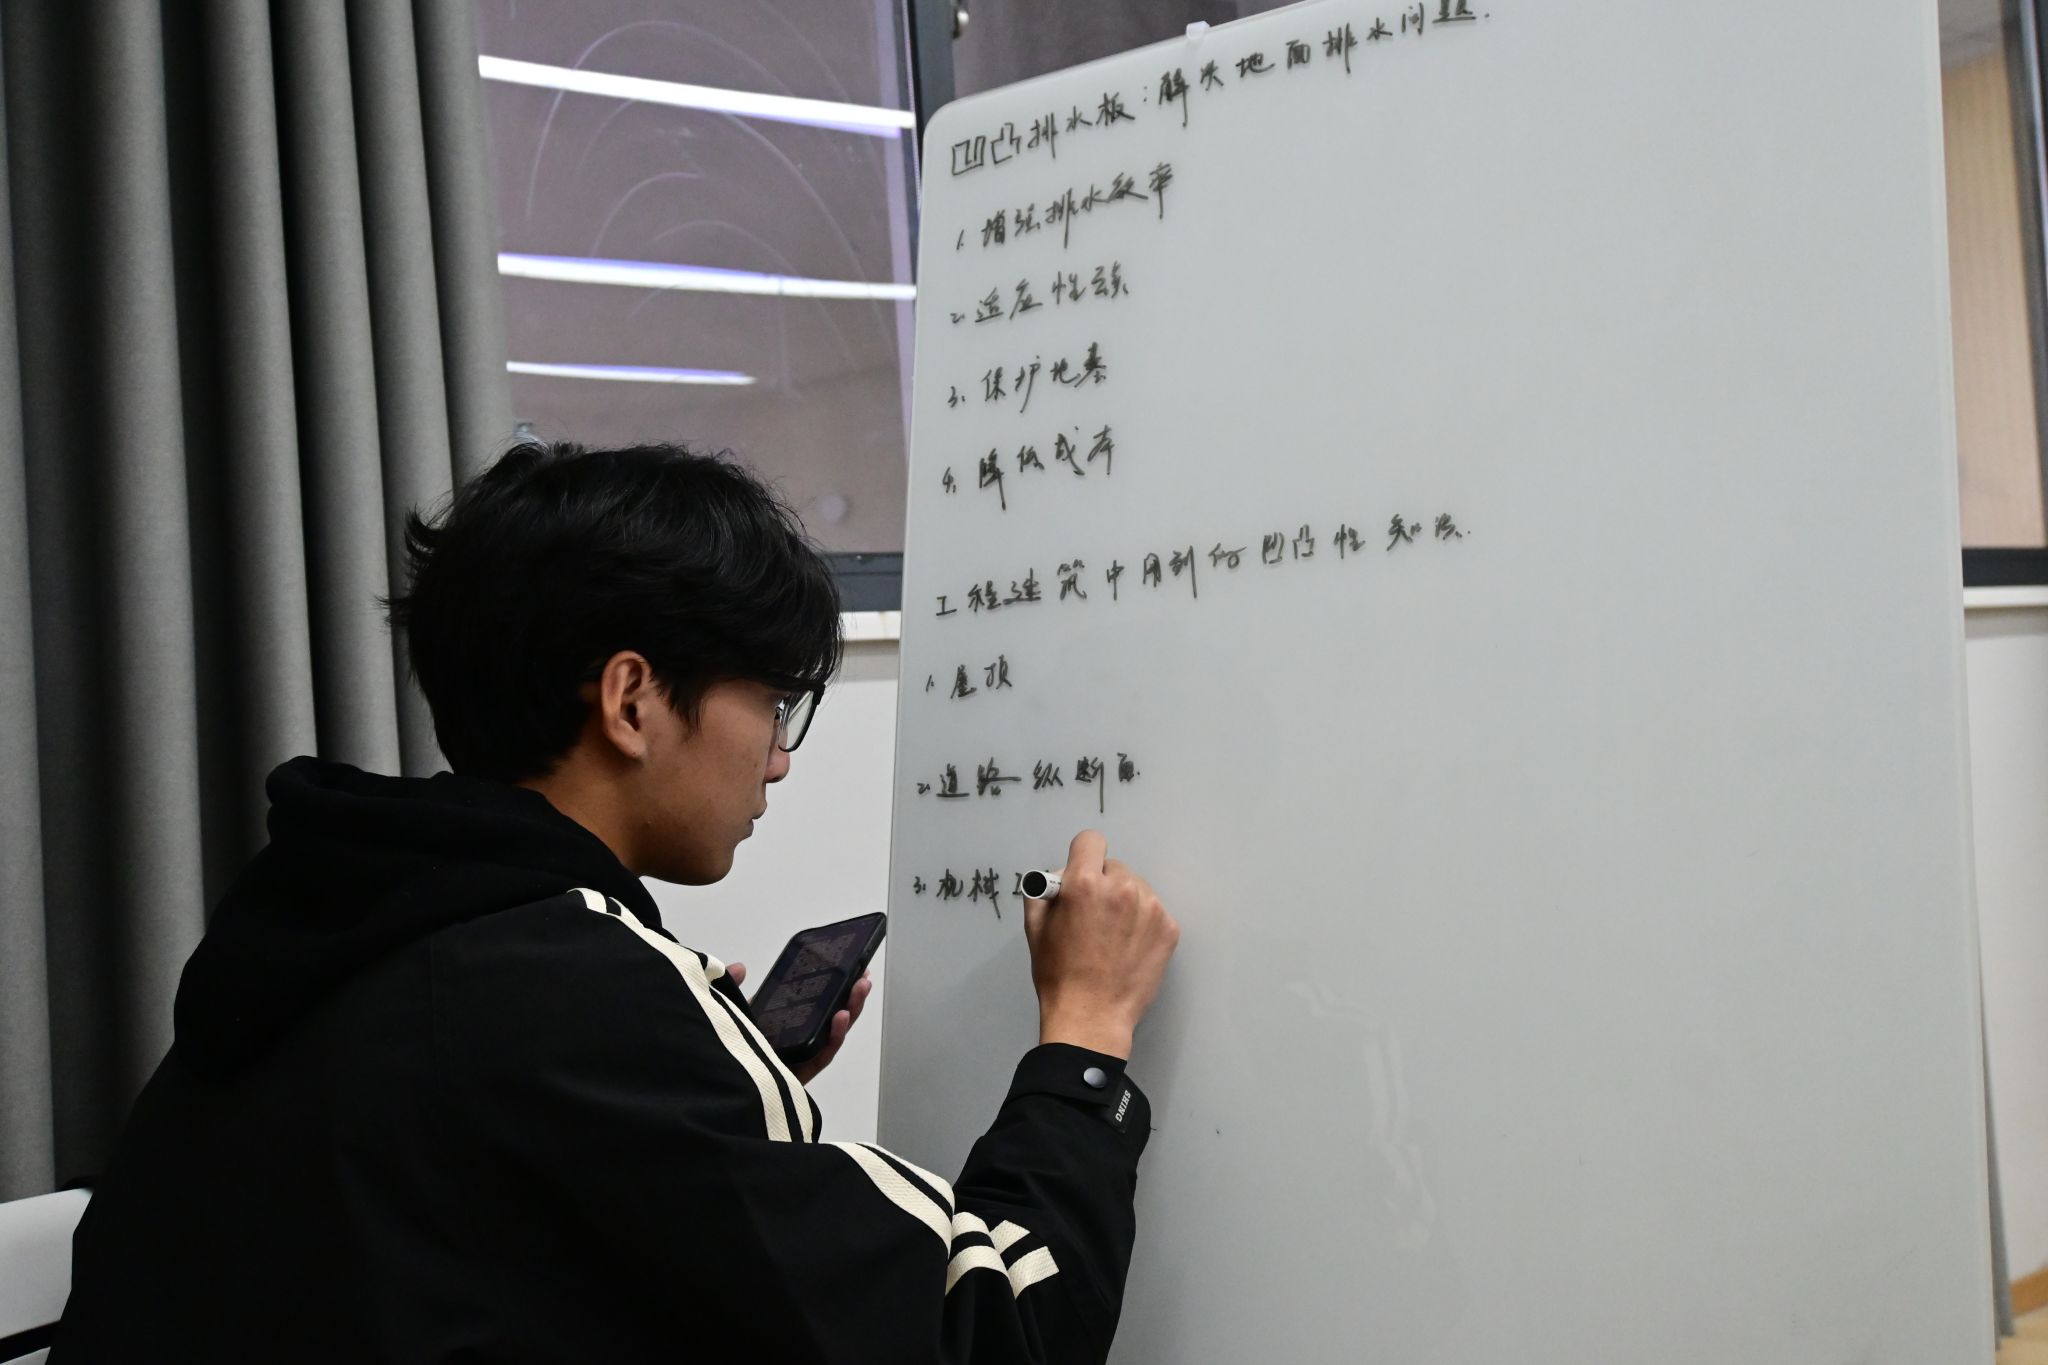 凹凸排水板：解决地面排水问题.
1. 增强排水效率
2. 适应性强
3. 保护地基
4. 降低成本
工程建筑中用到的凹凸性知识.
1. 屋顶
2. 道路纵断面.
3. 机械工
SHING